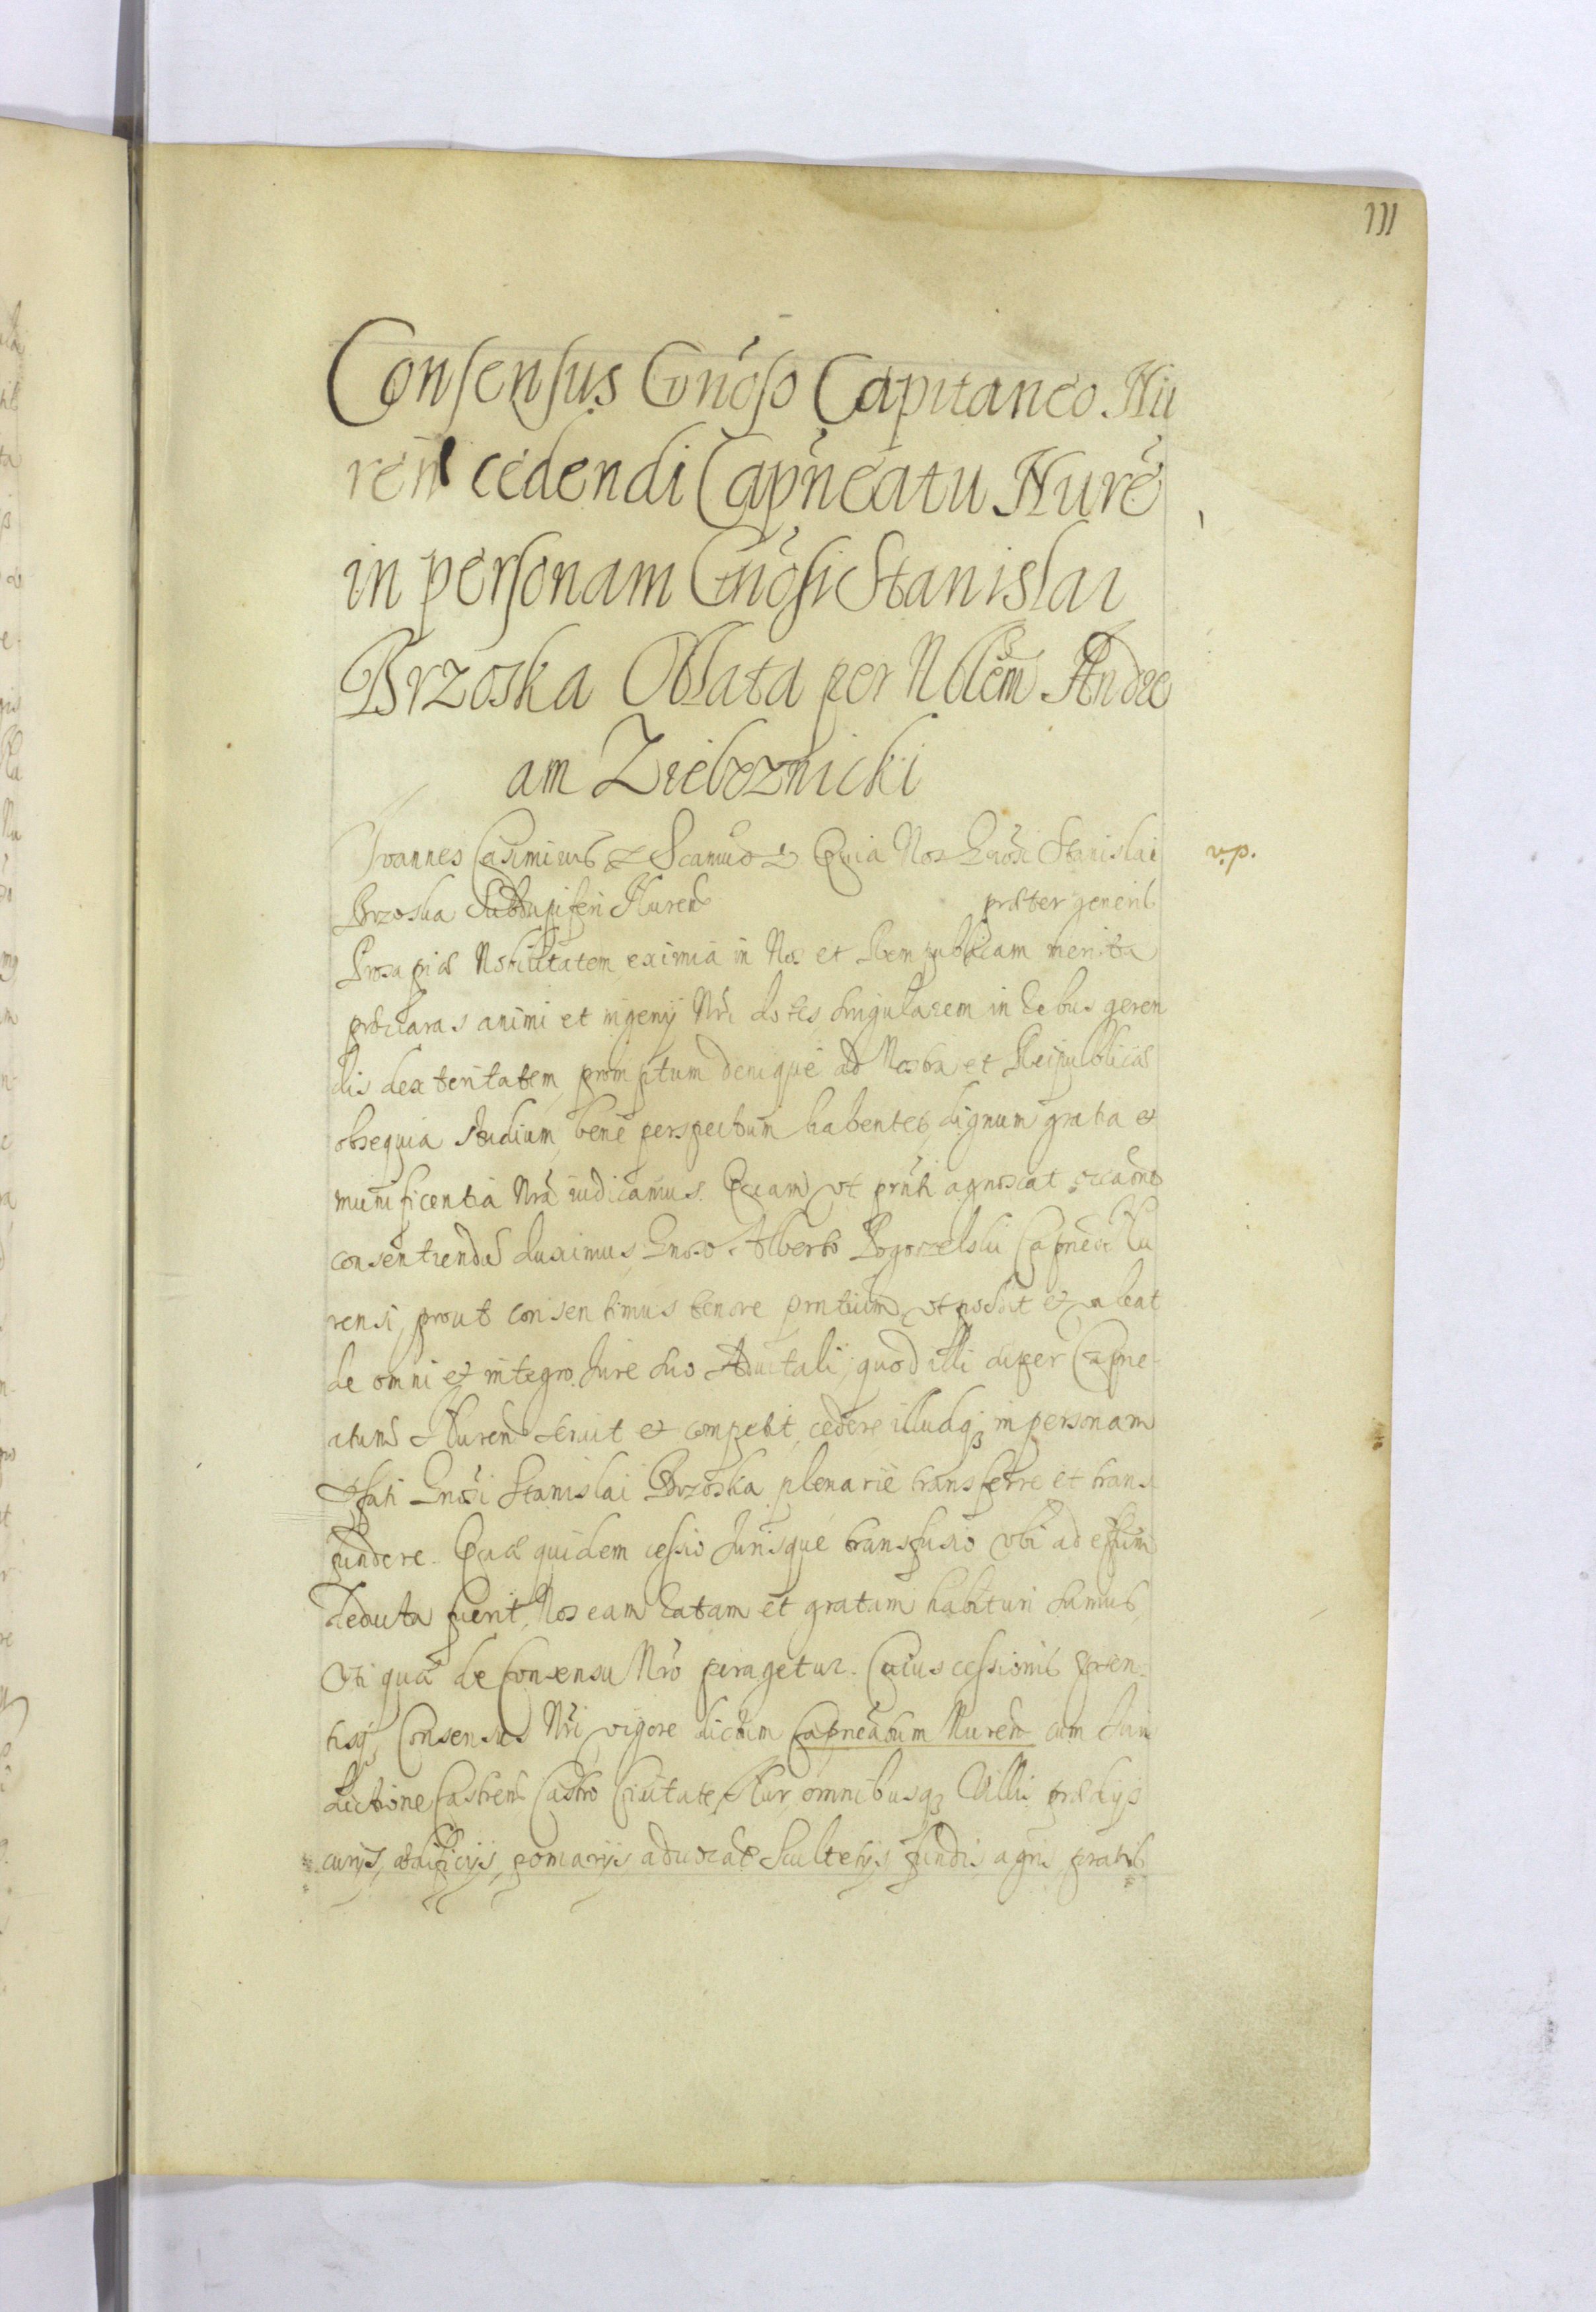 111
Consensus Gnoso Capitaneo Nu
ren cedendi Capneatu Nure
in personam Gnosi Stanislai
Brzoska Oblata per Nblem Andre
am Ziebrznicki
Joannes Casimirus & Quia Nos Gnosi Stanislai
v.p.
Brzoska Subdapiferi Nuren præter generis
Prosapiæ Nobilitatem, eximia in Nos et Rempublicam merita
præclaras animi et ingenij Nri dotes singularem in rebus geren
dis dexteritatem, promptum denique ad Nostra et Reipublicæ
obsequia studium, bene perspectum habentes, dignum gratia et
munificentia Nra iudicamus. Quam vt prnti agnoscat
consentiendum duximus, Gnoso Alberto Pogorzelski Capneo Nu
rensi, prout consentimus tenore prntium vt possit et valeat
de omni et integro Jure suo Aduitali, quod illi super Capne
atum Nuren seruit et competit, cedere illudq in personam
Gnosi Stanislai Brzoska plenarie transferre et trans
fundere. Quæ quidem cessio Jurisque transfusio vbi ad effum
deducta fuerit, Nos eam ratam et gratam habituri sumus,
Vti quæ de Consensu Nro peragetur. Cuius cessionis præsen
tisq, Consensus Nri vigore dictum Capneatum Nuren cum Juris
dictione Castren Castro Ciuitate Nur, omnibusq Villis prædijs
curijs, ædificijs, pomarijs aduocat Scultetijs fundis agris pratis